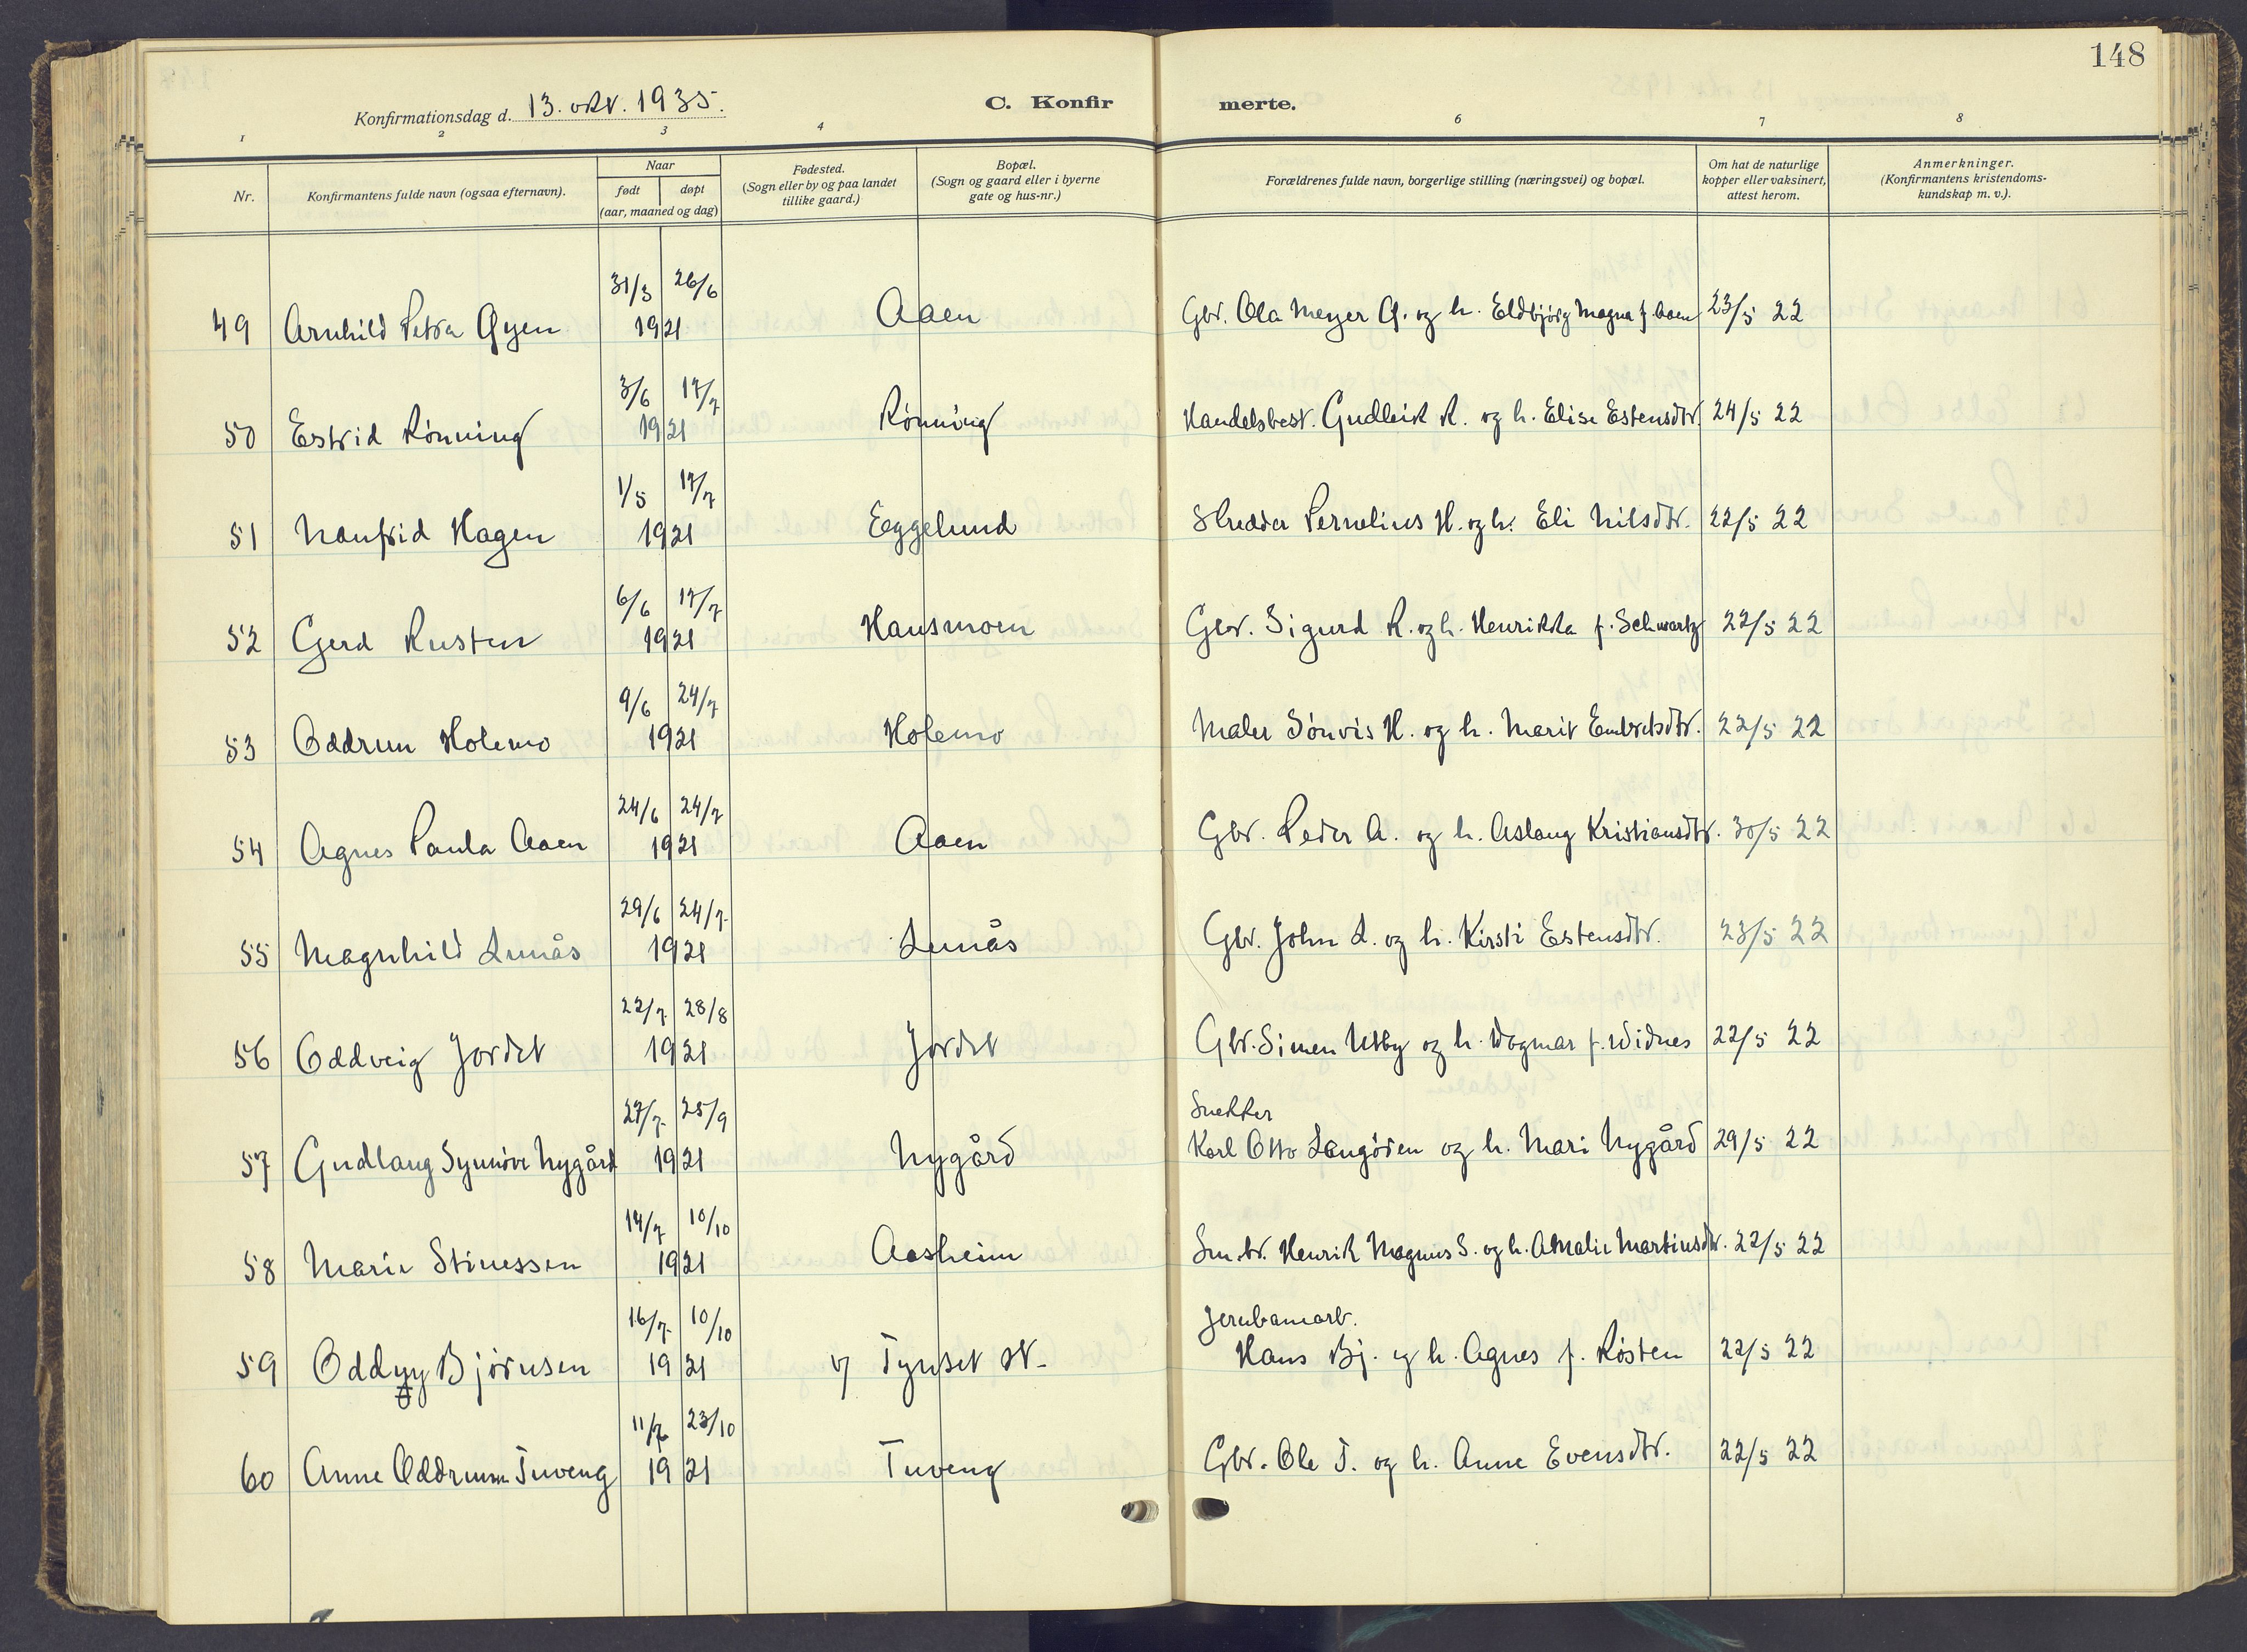 148
Konfirmationsdag d. 13. okt. 1935.
C. Konfirmerte.
1 2 3 4 6 7 8
Nr. Konfirmantens fulde navn (ogsaa efternavn). Naar født døpt (aar, maaned og dag) Fødested. (Sogn eller by og paa landet tillike gaard.) Bopæl. (Sogn og gaard eller i byerne gate og hus-nr.) Forældrenes fulde navn, borgerlige stilling (næringsvei) og bopæl. Om hat de naturlige kopper eller vaksinert, attest herom. Anmerkninger. (Konfirmantens kristendoms-kundskap m. v.).
31/3 26/6
49 Arnhild Petra Øyen 1921 Aaen Gbr. Ola Meyer Ø. og h. Eldbjørg Magna f. Aaen 23/5 22
3/6 17/7
50 Estrid Rønning 1921 Rønning Handelsbest. Gudleik R. og h. Elise Estensdtr. 24/5 22
1/5 17/7
51 Nanfrid Hagen 1921 Eggelund Skredder Pernelius H. og h. Eli Nilsdtr. 22/5 22
6/6 17/7
52 Gerd Rusten 1921 Hansmoen Gbr. Sigurd R. og h. Henrikka f. Schwartz 22/5 22
9/6 24/7
53 Oddrun Holemo 1921 Holemo Maler Sønvis H. og h. Marit Embretsdtr. 22/5 22
24/6 24/7
54 Agnes Paula Aaen 1921 Aaen Gbr. Peder A. og h. Aslaug Kristiansdtr. 30/5 22
29/6 24/7
55 Magnhild Lunås 1921 Lunås Gbr. John L. og h. Kirsti Estensdtr. 23/5 22
22/7 28/8
56 Oddveig Jordet 1921 Jordet Gbr. Simen Utby og h. Dagmar f. Widnes 22/5 22
27/7 25/9 Snekker
57 Gudlaug Synnøve Nygård 1921 Nygård Karl Otto Langøien og h. Mari Nygård 29/5 22
14/7 10/10
58 Marie Stinessen 1921 Aasheim Sm.br. Henrik Magnus S. og h. Amalie Martinsdtr. 22/5 22
16/7 10/10 Jernbanearb.
59 Oddny Bjørnsen 1921 v/ Tynset st. Hans Bj. og h. Agnes f. Røsten 22/5 22
11/7 23/10
60 Anne Oddrunn Tuveng 1921 Tuveng Gbr. Ole T. og h. Anne Evensdtr. 22/5 22